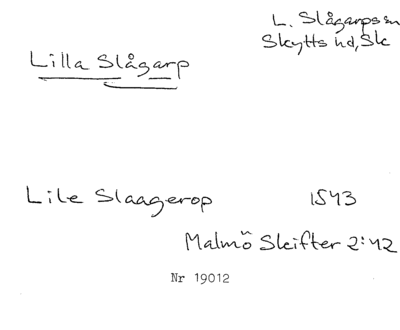 L. Slågarps sn
Skytts hd, Sk
Lilla Slågarp
Lile Slaagerop 1543
Malmö Skifter 2:42
Nr 19012